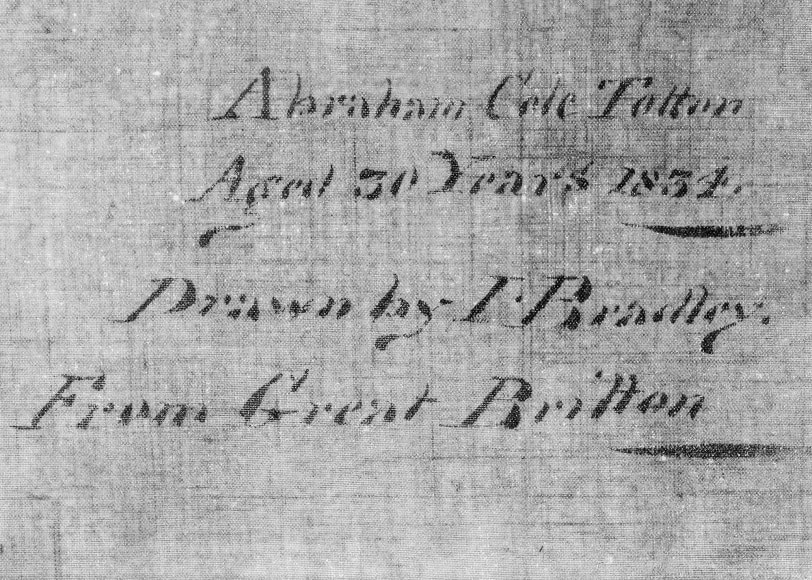 Abraham Cole Totton
Aged 30 Years 1834.
Drawn by I. Bradley.
From Great Britton